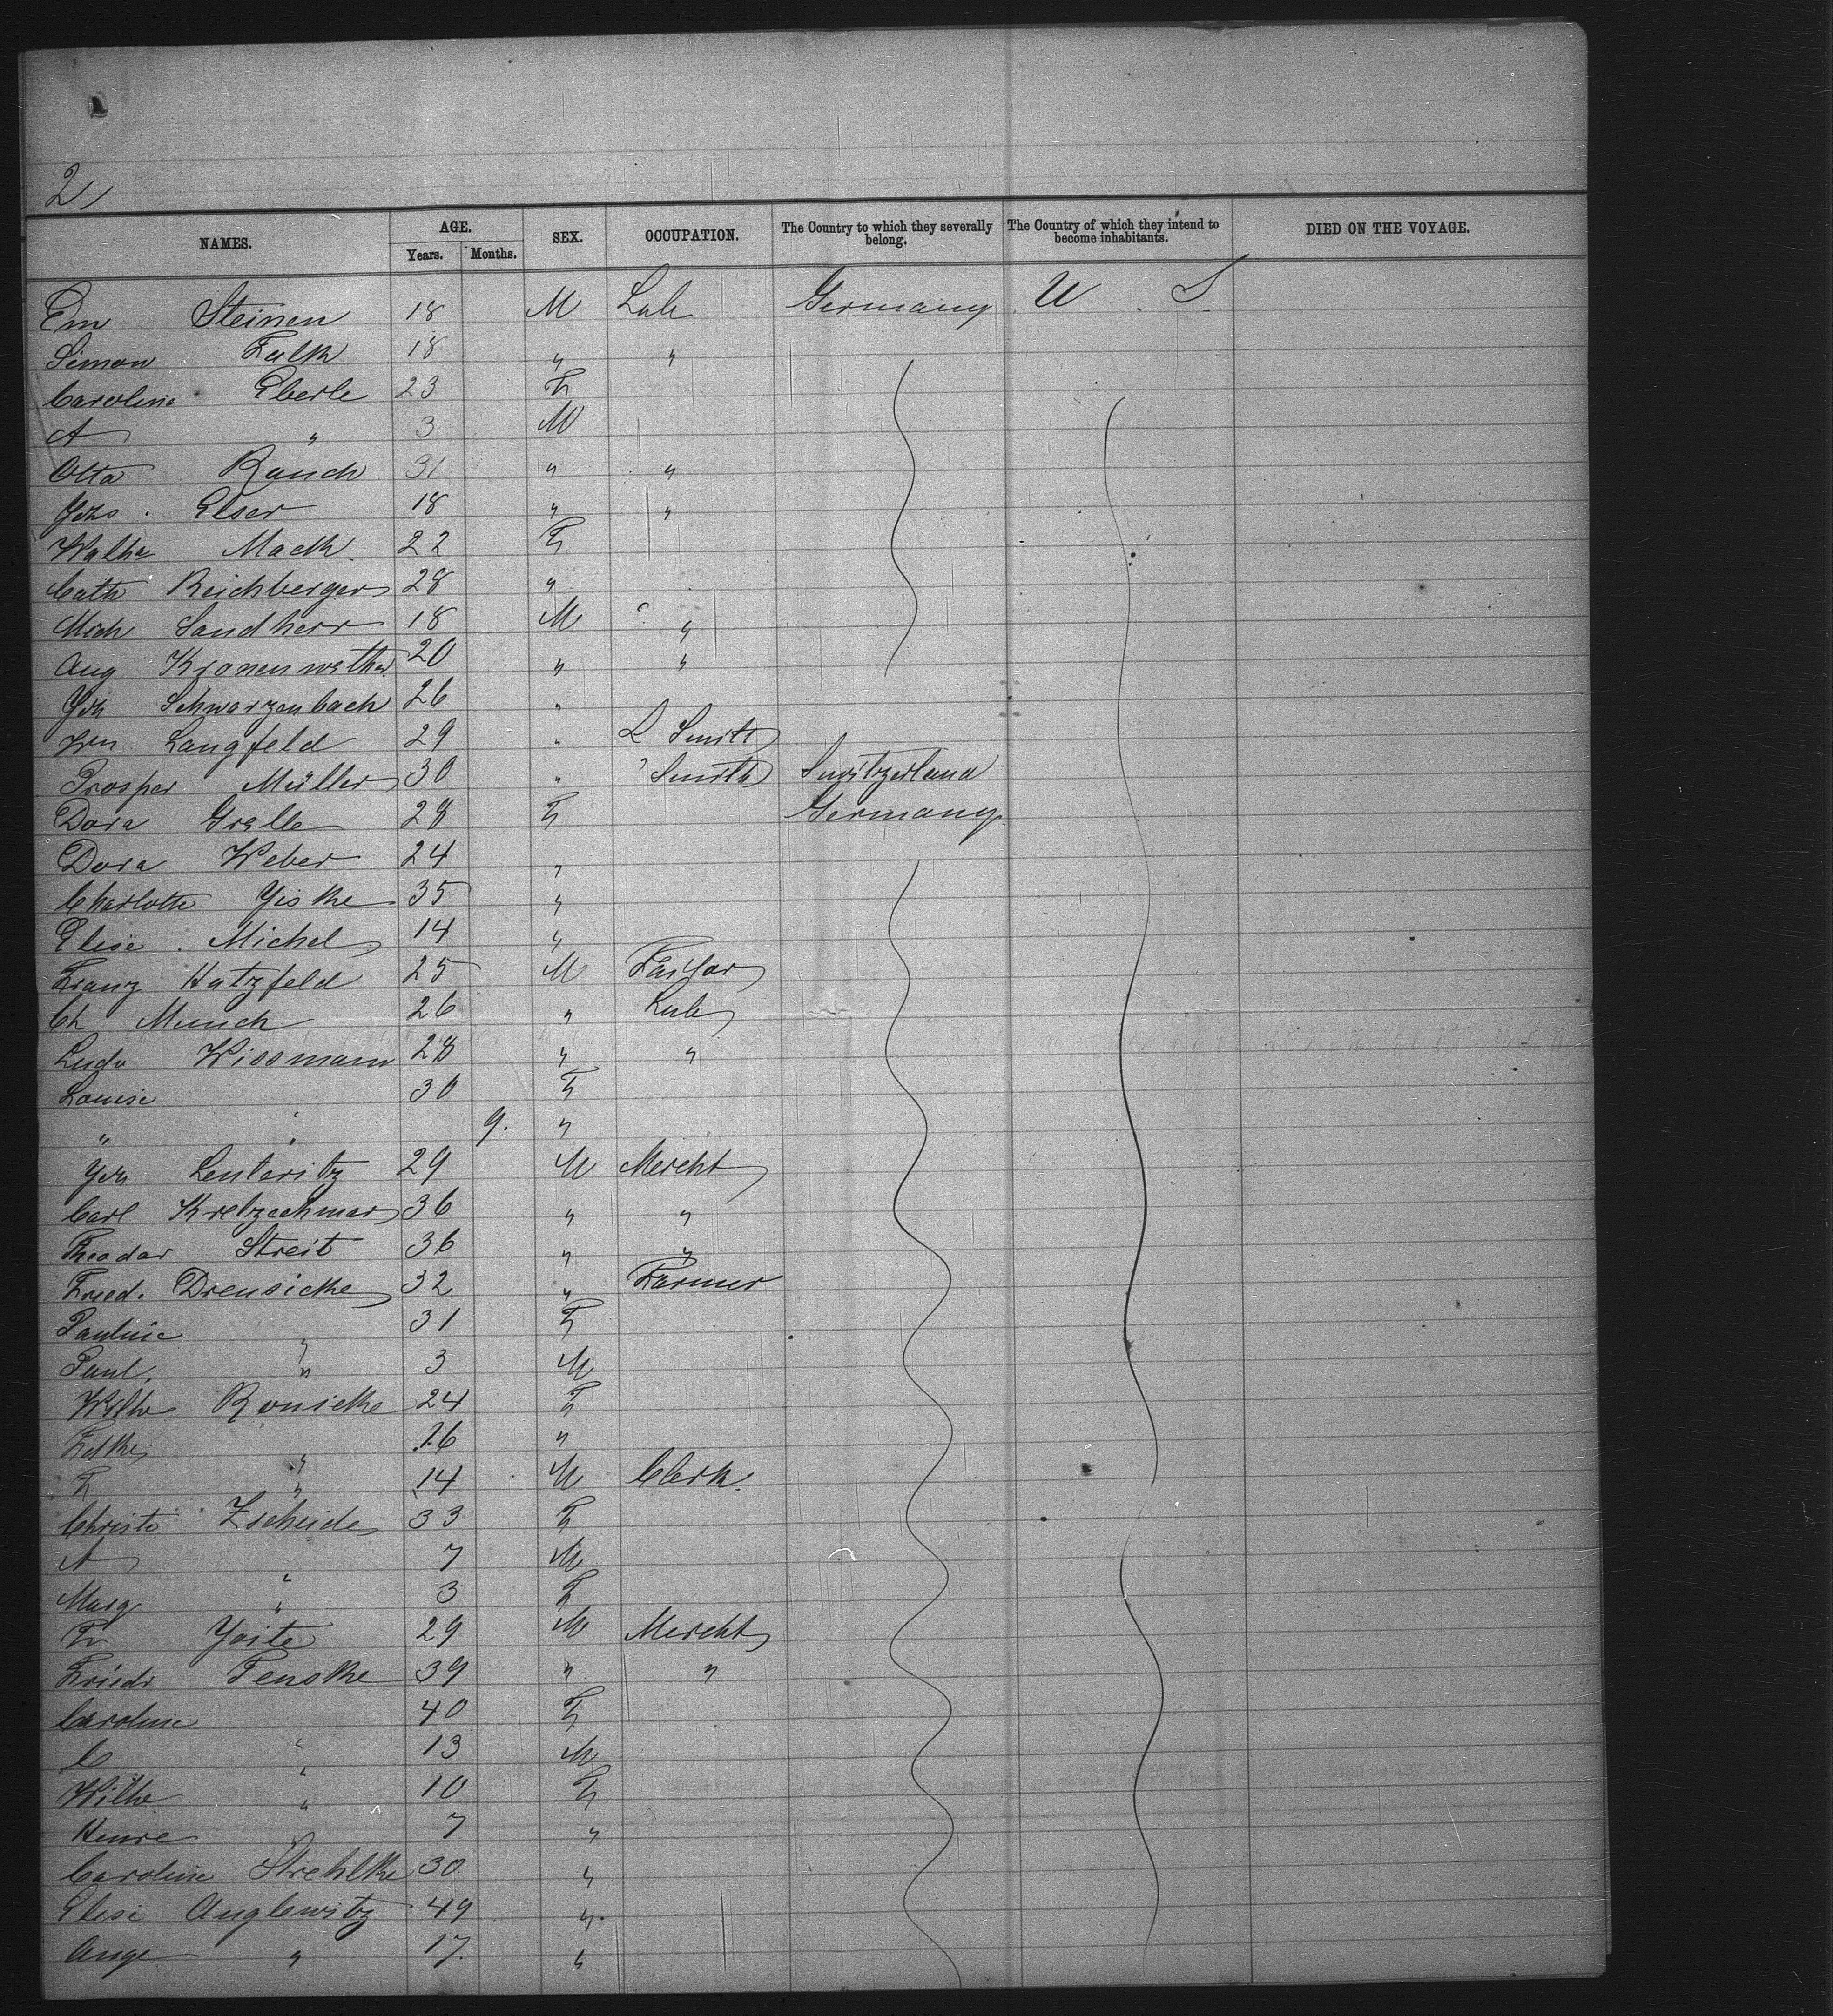 2,
NAMES. AGE. SEX. OCCUPATION. The Country to which they severally belong. The Country of which they intend to become inhabitants. DIED ON THE VOYAGE.
Years. Months.
Em Steinen 18 M Lab Germany U S
Simon Falk 18 " "
Caroline Eberle 23 F
A " 3 M
Otto Rauch 31 " "
Johs. Elser 18 " "
Walha Mack 22 F
Cath Reichberger 28 "
Mich Sandherr 18 M "
Aug Kronenwether 20 " "
Joh Schwarzenbach 26 "
Wm Langfeld 29 " L Smith
Prosper Müller 30 " Smith Switzerland
Dora Gralle 28 F Germany
Dora Weber 24 "
Charlotte Jiske 35 "
Elise Michel 14 "
Franz Hatzfeld 25 M Taylor
Ch Munch 26 " Lab
Ludw Wissmann 28 " "
Louise " 30 F
" " 9. "
Joh Lenteritz 29 M Mercht
Carl Kretzschmar 36 " "
Theodor Streit 36 " "
Fried. Dreusicke 32 " Farmer
Pauline " 31 F
Paul. " 3 M
Wilhe Ronicke 24 F
" 16 "
F " 14 M Clerk.
Christi Zscheide 33 F
A " 7 M
Marg " 3 F
Fr Joite 29 M Mercht
Friedr Penske 39 " "
Caroline " 40 F
C " 13 M
Wilhe " 10 F
Henre " 7 "
Caroline Strehlke 30 "
Elise Anglewitz 49 "
Auge " 17 "